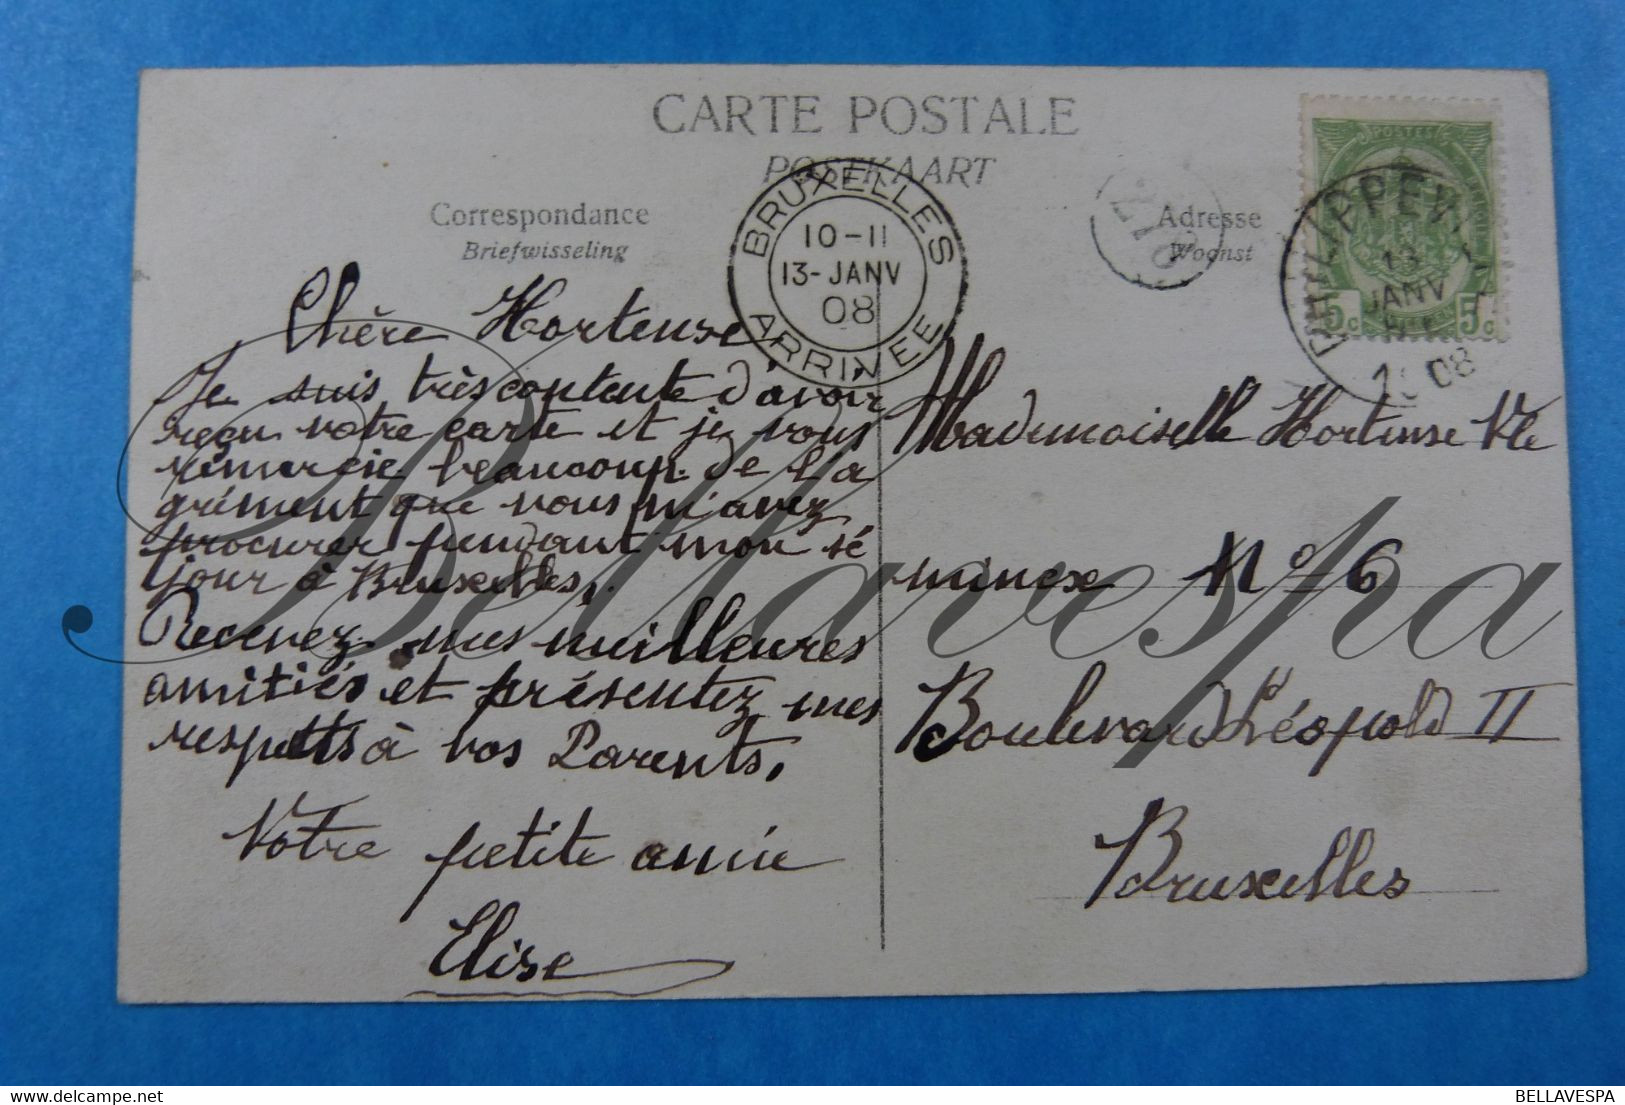 CARTE POSTALE
POSTKAART
Correspondance
Briefwisseling
Adresse
Woonst
BRUXELLES
10-11
13-JANV
08
ARRIVEE
POSTES
5c 5c
PHILIPPEVILLE
13
JANV
08
Chère Hortense,
Je suis très contente d'avoir
reçu votre carte et je vous
remercie beaucoup de l'a
grément que vous m'avez
procurer pendant mon sé
jour à Bruxelles,.
Recevez mes meilleures
amitiés et présentez mes
respects à vos Parents,
Votre petite amie
Elise
Mademoiselle Hortense Vle
minex N° 6
Boulevard Léopold II
Bruxelles
Bellavespa
BELLAVESPA